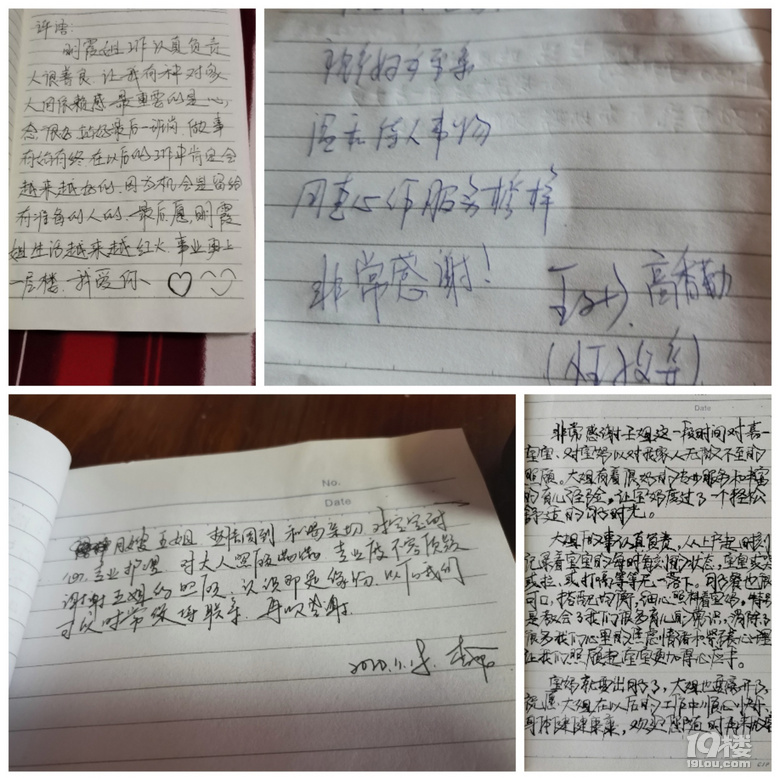 评语:
明霞姐工作认真负责
人很善良，让我有种对家
人间很亲感 最重要的是心
态很好 站好最后一班岗 做事
有始有终 在以后的工作中肯定会
越来越好的，因为机会是留给
有准备的人的、最后愿，明霞
姐生活越来越红火、事业更上
一层楼、我爱你、
温和待人事物
用真心作服务
非常感谢！
高香勤
No.
Date
月嫂王姐 和蔼亲切 对宝宝耐
心 专业护理 对大人照顾 专业度不容质疑
谢谢王姐的照顾 认识即是缘份 以后我们
可以时常保持联系 再次感谢
2020.11.15
Date
非常感谢王姐这一段时间对喜
宝宝、对宝妈以及对我家人无微不至的
照顾。大姐有着很好的专业服务和丰富
的育儿经验，让宝妈度过了一个轻松
舒适的月子时光。
大姐做事认真负责，从上户起 时刻
记录着宝宝的每时每刻的状态，宝宝
或拉、或打嗝等等无一落下。月子餐也很
可口，搭配均衡，细心照料着宝妈，特别
是教会了我们很多育儿的常识，消除了
很多我们心里的焦虑情绪和紧张心理
让我们照顾起宝宝更加得心应手。
宝妈就要出月子了，大姐也要离开了
祝愿大姐在以后的工作中顺心顺利，
身体健健康康，欢迎随时再来
19楼
19lou.com